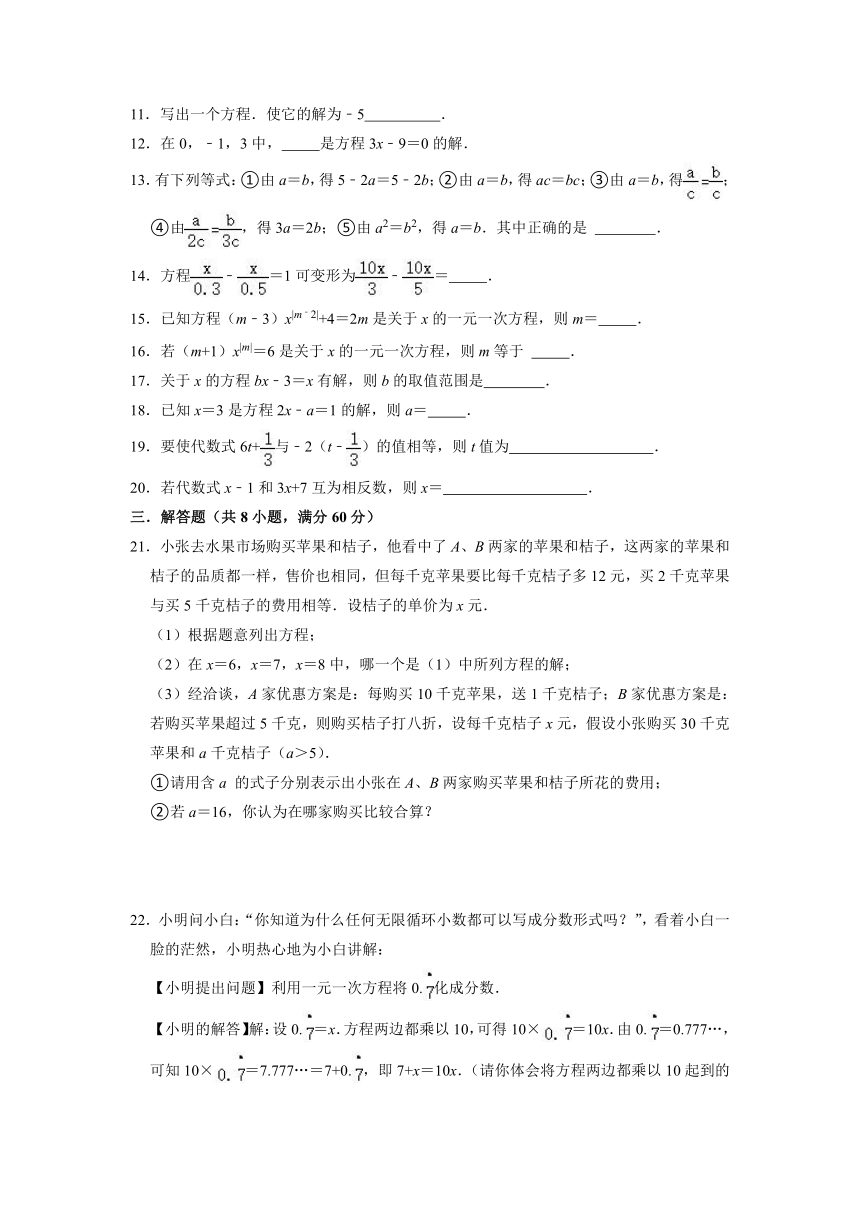 11．写出一个方程．使它的解为﹣5 ．
12．在 0，﹣1，3 中， 是方程 3x﹣9＝0 的解．
13．有下列等式：①由 a＝b，得 5﹣2a＝5﹣2b；②由 a＝b，得 ac＝bc；③由 a＝b，得a/c=b/c；
④由a/2c=b/3c，得 3a＝2b；⑤由 a²＝b²，得 a＝b．其中正确的是 ．
14．方程x/0.3﹣x/0.5＝1 可变形为10x/3﹣10x/5＝ ．
15．已知方程（m﹣3）x|m﹣2|+4＝2m 是关于 x 的一元一次方程，则 m＝ ．
16．若（m+1）x|m|＝6 是关于 x 的一元一次方程，则 m 等于 ．
17．关于 x 的方程 bx﹣3＝x 有解，则 b 的取值范围是 ．
18．已知 x＝3 是方程 2x﹣a＝1 的解，则 a＝ ．
19．要使代数式 6t+1/3与﹣2（t﹣1/3）的值相等，则 t 值为 ．
20．若代数式 x﹣1 和 3x+7 互为相反数，则 x＝ ．
三．解答题（共 8 小题，满分 60 分）
21．小张去水果市场购买苹果和桔子，他看中了 A、B 两家的苹果和桔子，这两家的苹果和
桔子的品质都一样，售价也相同，但每千克苹果要比每千克桔子多 12 元，买 2 千克苹果
与买 5 千克桔子的费用相等．设桔子的单价为 x 元．
（1）根据题意列出方程；
（2）在 x＝6，x＝7，x＝8 中，哪一个是（1）中所列方程的解；
（3）经洽谈，A 家优惠方案是：每购买 10 千克苹果，送 1 千克桔子；B 家优惠方案是：
若购买苹果超过 5 千克，则购买桔子打八折，设每千克桔子 x 元，假设小张购买 30 千克
苹果和 a 千克桔子（a＞5）．
①请用含 a 的式子分别表示出小张在 A、B 两家购买苹果和桔子所花的费用；
②若 a＝16，你认为在哪家购买比较合算？
22．小明问小白：“你知道为什么任何无限循环小数都可以写成分数形式吗？”，看着小白一
脸的茫然，小明热心地为小白讲解：
【小明提出问题】利用一元一次方程将 0.7̇化成分数．
【小明的解答】解：设 0.7̇＝x．方程两边都乘以 10，可得 10×0.7̇＝10x．由 0.7̇＝0.777…，
可知 10×0.7̇＝7.777…＝7+0.7̇，即 7+x＝10x．（请你体会将方程两边都乘以 10 起到的